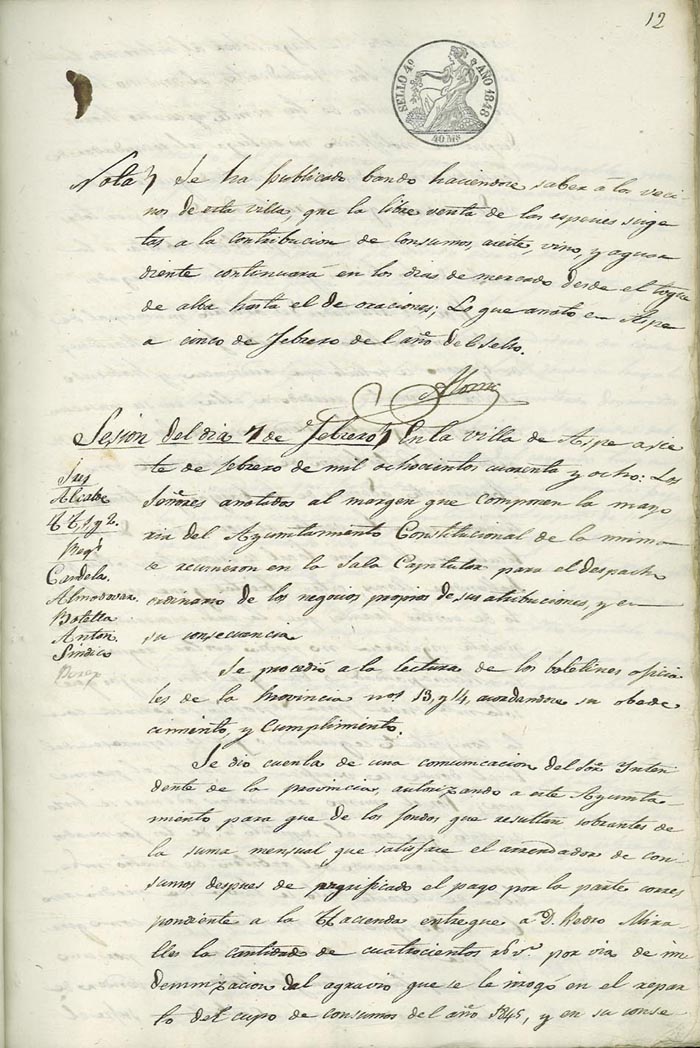 12
SELLO 4º AÑO 1848
40 Ms
Nota Se ha publicado bando haciendose saber á los veci
nos de esta villa, que la libre venta de las especies suge
tas a la contribucion de consumos, aceite, vino, y aguar
diente continuará en los dias de mercado desde el toque
de alba hasta el de oraciones; Lo que anoto en Aspe
a cinco de Febrero del año del sello.
Sesion del dia 7 de Febrero En la villa de Aspe a sie
te de febrero de mil ochocientos cuarenta y ocho: Los
Señores anotados al margen que componen la mayo
ria del Ayuntamiento Constitucional de la misma
se reunieron en la Sala Capitular para el despacho
ordinario de los negocios propios de sus atribuciones, y en
su consecuencia
Sres
Alcalde
TT, 1 y 2.
Regs
Candela
Almodovar
Botella
Anton
Sindico
Perez
Se procedió a la lectura de los boletines oficia
les de la Provincia nos 13, y 14, acordandose su obede
cimiento, y cumplimiento.
Se dio cuenta de una comunicacion del Sor Inten
dente de la provincia, autorizando a este Ayunta
miento para que de los fondos que resulten sobrantes de
la suma mensual que satisface el arrendador de con
sumos despues de el pago por la parte corres
pondiente a la Hacienda entregue a D. Pedro Mira
lles la cantidad de cuatrocientos rs vn por via de in
demnizacion del agravio que se le irrogó en el repar
to del cupo de consumos del año 1845, y en su conse